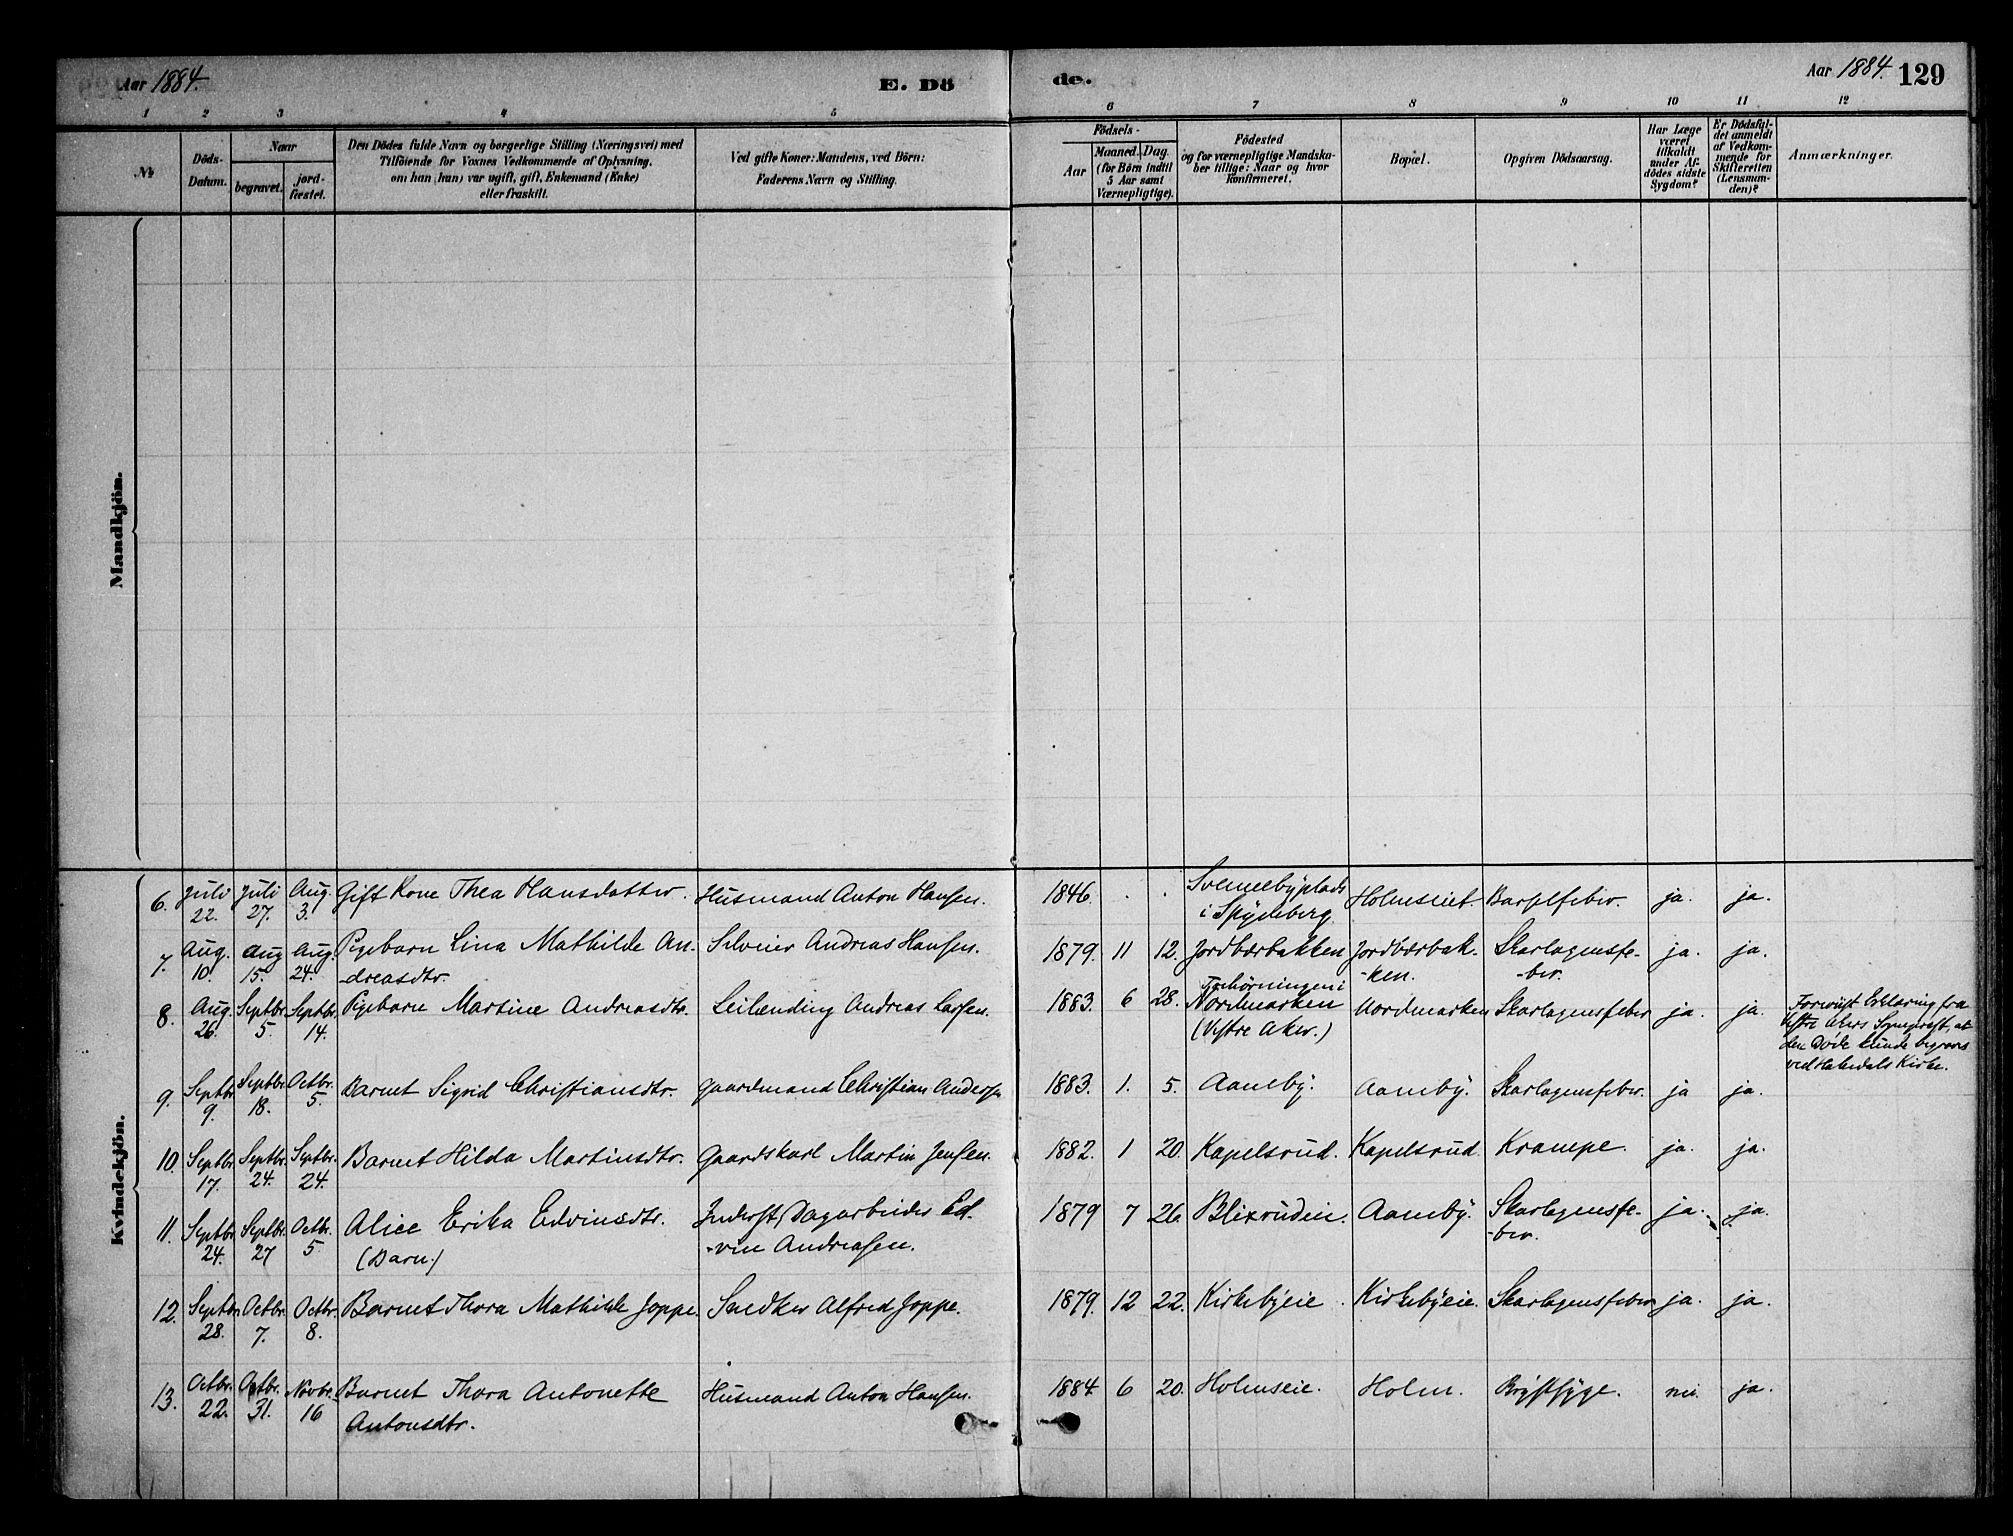 Aar 1884.
E. Dö
de.
Aar 1884. 129
1 2 3 4 5 6 7 8 9 10 11 12
№
Döds-
Datum.
Naar
begravet.
jord-
fæstet.
Den Dödes fulde Navn og borgerlige Stilling (Næringsvei) med
Tilföiende for Voxnes Vedkommende af Oplysning,
om han (hun) var ugift, gift, Enkemand (Enke)
eller fraskilt.
Ved gifte Koner: Mandens, ved Börn:
Faderens Navn og Stilling.
Födsels-
Aar
Maaned. Dag.
(for Börn indtil
5 Aar samt
Værnepligtige).
Födested
og for værnepligtige Mandska-
ber tillige: Naar og hvor
Konfirmeret.
Bopæl.
Opgiven Dödsaarsag.
Har Læge
været
tilkaldt
under Af-
dödes sidste
Sygdom?
Er Dödsfal-
det anmeldt
af Vedkom-
mende for
Skifteretten
(Lensman-
den)?
Anmærkninger.
Mandkjön.
Kvindekjön.
6. Juli 22. Juli 27. Aug. 3. Gift Kone Thea Hansdatter. Husmand Anton Hansen. 1846. . . Svennebyplads
i Spydeberg Holmseiet. Barselfeber. ja. ja.
7. Aug. 10. Aug 15. Aug. 24. Pigebarn Lina Mathilde An-
-dreasdtr. Selveier Andreas Hansen. 1879. 11 12. Jordbærbakken Jordbærbak-
-ken. Skarlagensfe-
-ber. ja. ja.
8. Aug. 26. Septbr. 5. Septbr. 14. Pigebarn Martine Andreasdtr. Leilænding Andreas Larsen. 1883. 6 28. Tjarhörningen i
Nordmarken
(Vestre Aker.) Nordmarken Skarlagensfeber ja. ja. Forevist Erklæring fra
Vestre Akers Sognepræst, at
den Døde kunde begraves
ved Hakedals Kirke.
9. Septbr. 9. Septbr. 18. Octbr. 5. Barnet Sigrid Christiansdtr. Gaardmand Christian Andersen 1883. 1. 5. Aameby. Aamby. Skarlagensfeber. ja ja.
10. Septbr. 17. Septbr. 24. Septbr. 24. Barnet Hilda Martinsdtr. Gaardskarl Martin Jensen. 1882. 1 20. Kapelsrud. Kapelsrud. Krampe. ja. ja.
11. Septbr. 24. Septbr. 27 Octbr. 5 Alice Erika Edvinsdtr.
(Barn.) Inderst, Dagarbeider Ed-
-vin Andreasen. 1879 7 26. Blixrudeie. Aamby. Skarlagensfe-
-ber. ja. ja.
12. Septbr. 28. Octbr. 7. Octbr. 8. Barnet Thora Mathilde Joppe. Snedker Alfred Joppe. 1879. 12 22. Kirkebyeie. Kirkebyeie. Skarlagensfeber ja. ja.
13. Octbr. 22. Octbr. 31. Novbr. 16 Barnet Thora Antonette
Antonsdtr. Husmand Anton Hansen. 1884 6 20. Holmseie. Holm. Brystsyge. nei. ja.